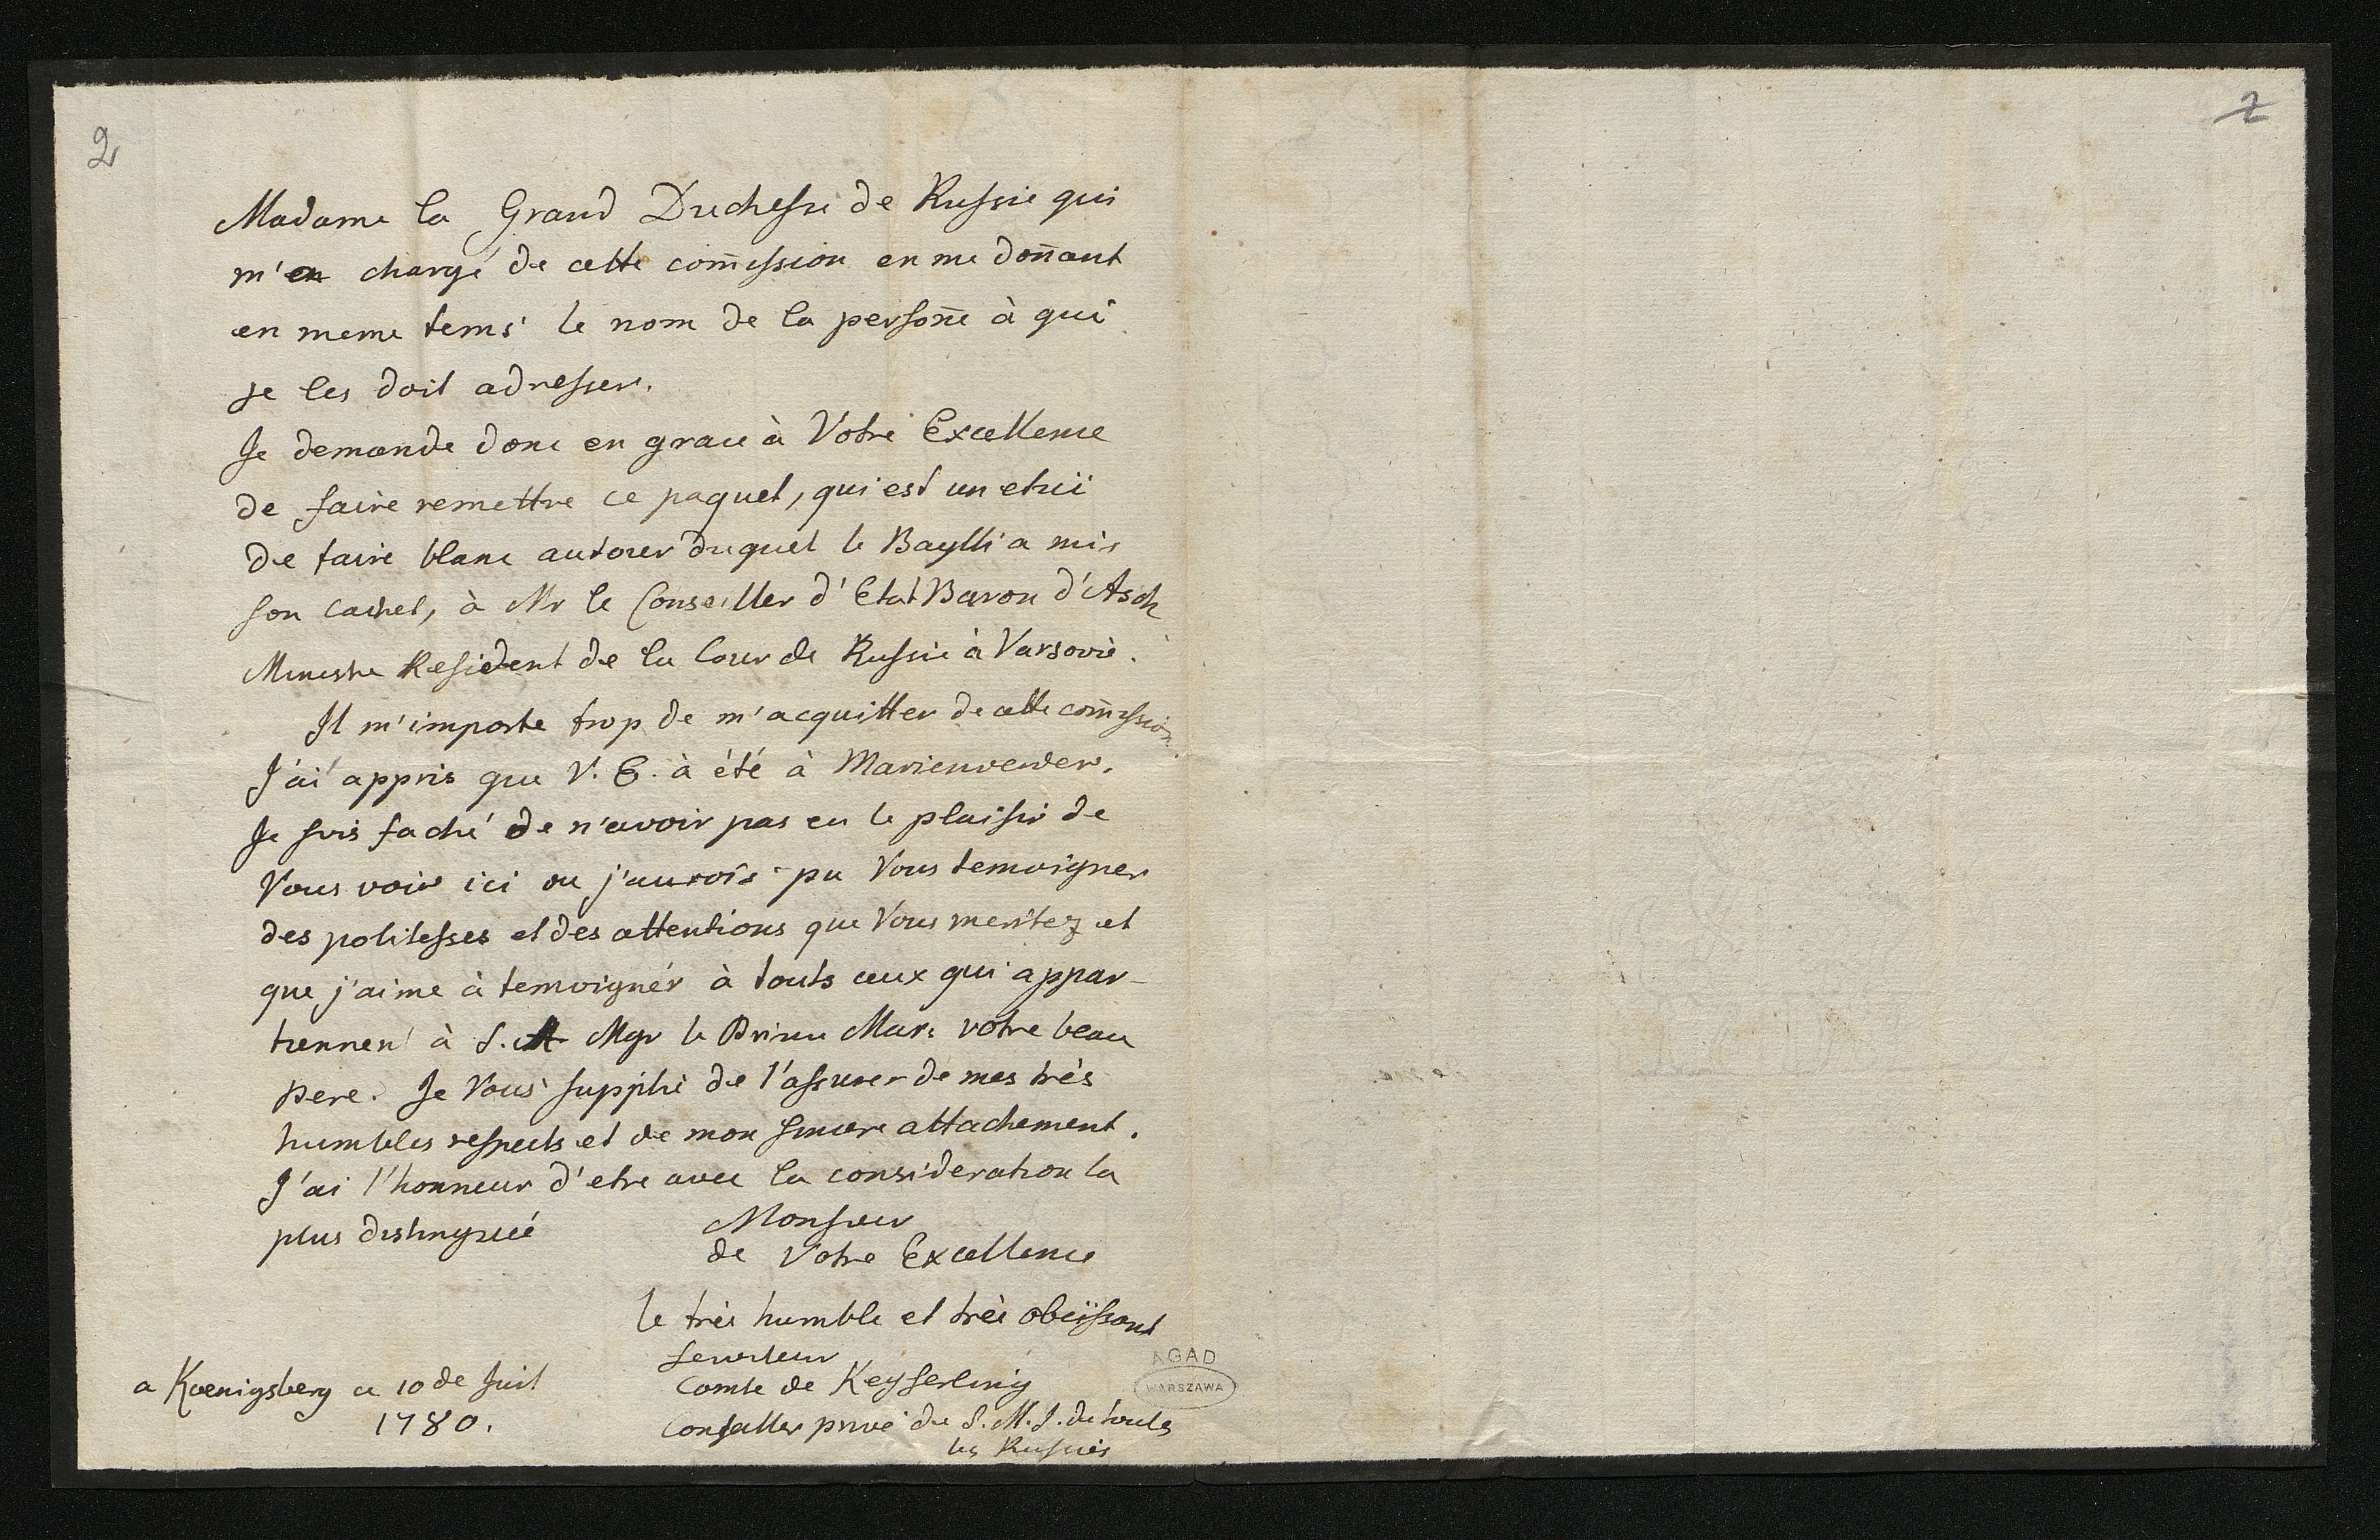 2
2
Madame la Grand Duchesse de Russie qui
m'en chargé de cette com̄ission en me don̄ant
en meme tems le nom de la person̄e à qui
je les doit adresser.
Je demande donc en grace à Votre Excellence
de faire remettre ce paquet, qui est un etui
de taire blanc autour duquel le Baylli a mis
son cachet, à Mr le Conseiller d'Etat Baron d'Asch
Ministre Resident de la Cour de Russie à Varsovie.
Il m'importe trop de m'acquitter de cette com̄ission.
J'ai appris que V. E. à été à Marienwerder.
Je suis faché de n'avoir pas eu le plaisir de
Vous voir ici ou j'aurois pu Vous temoigner
des politesses et des attentions que Vous meritez et
que j'aime à temoigner à touts ceux qui appar-
tiennent à S. A Mgr le Prince Mar: votre beau
pere. Je Vous supplie de l'assurer de mes très
humbles respects et de mon sincere attachement.
J'ai l'honneur d'etre avec la consideration la
plus distinguée
Monsieur
de Votre Excellence
le très humble et très obeïssant
serviteur
Comte de Keyserling
Conseller privé de S. M. I. de toutes
les Russies
a Koenigsberg ce 10 de Juil
1780.
AGAD
WARSZAWA